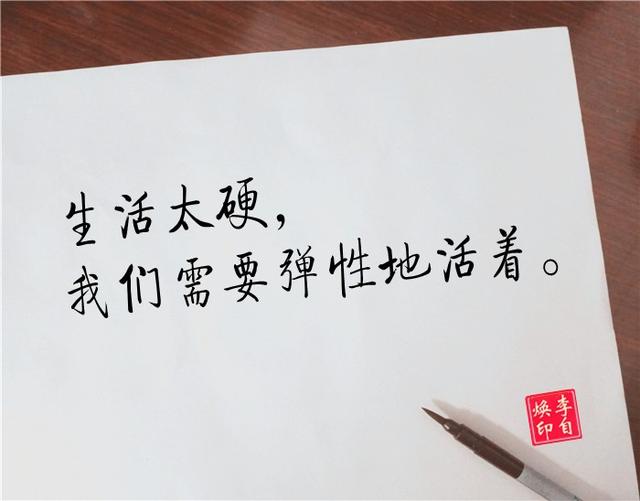 生活太硬，
我们需要弹性地活着。
李自
焕印